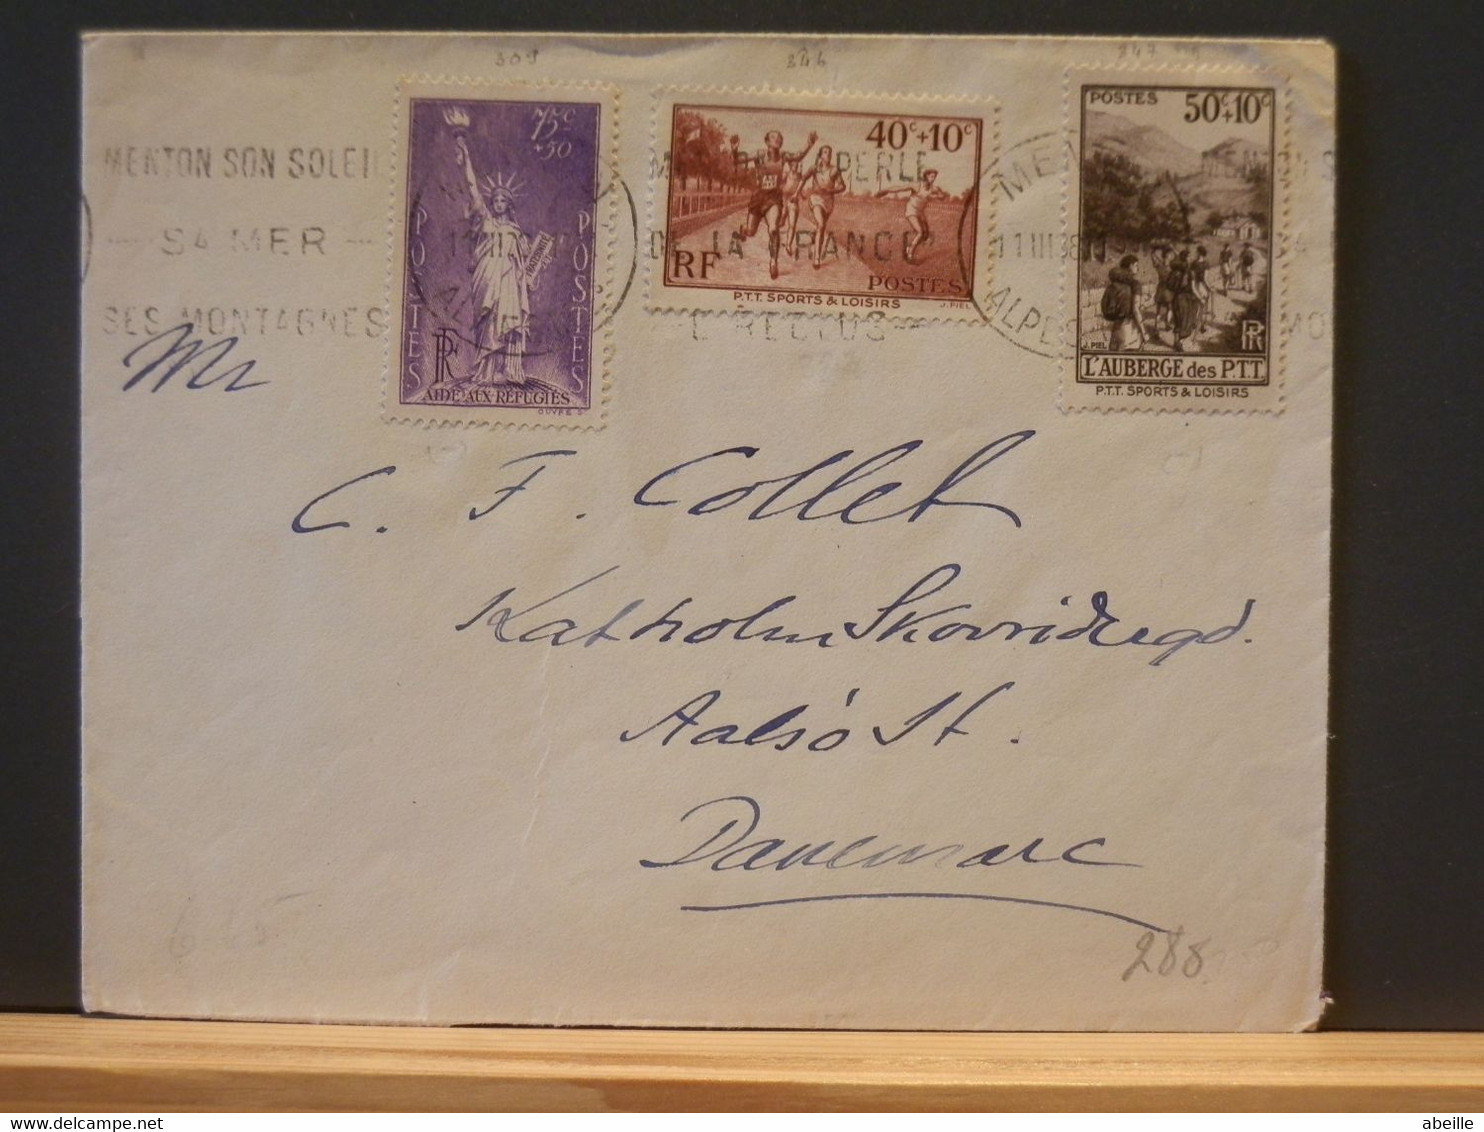 309
346
347
MENTON SON SOLEIL
SA MER
SES MONTAGNES
75c
+50
POSTES
POSTES
RF
AIDE AUX RÉFUGIÉS
OUVRÉ S.
40c+10c
RF
POSTES
P.T.T. SPORTS & LOISIRS
J. PIEL
PERLE
DE LA FRANCE
E. RECLUS
11 III 38
POSTES 50c+10c
J. PIEL
RF
L'AUBERGE des P.T.T.
P.T.T. SPORTS & LOISIRS
Mr
C. F. Collet
Katholm Skovridergd.
Aalsö St.
Danemarc
288
abeille